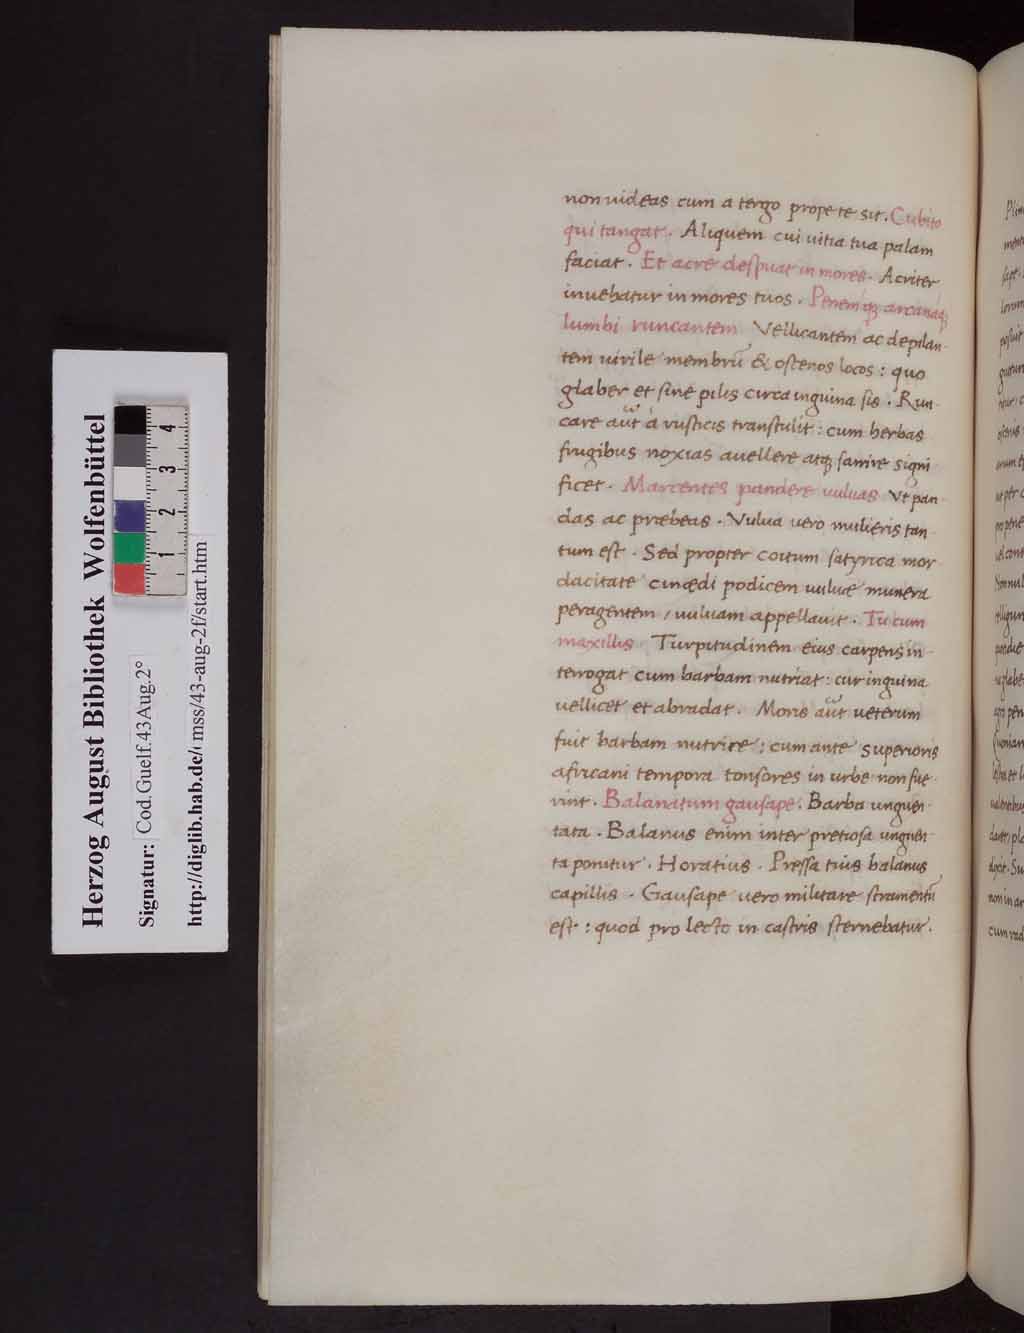 non uideas cum a tergo prope te sit. Cubito
qui tangat. Aliquem cui uitia tua palam
faciat. Et acre despuat in mores. Acriter
inuehatur in mores tuos. Penemq; arcanaq;
lumbi runcantem. Vellicantem ac depilan-
tem uirile membrū & oscenos locos: quo
glaber et sine pilis circa inguina sis. Run-
care aūt a rusticis transtulit: cum herbas
frugibus noxias auellere atq; sarrire signi-
ficet. Marcentes pandere uuluas. Vt pan-
das ac præbeas. Vulua uero mulieris tan-
tum est. Sed propter coitum satyrica mor
dacitate cinædi podicem uuluæ munera
peragentem, uuluam appellauit. Tu cum
maxillis. Turpitudinem eius carpens in-
terrogat cum barbam nutriat: cur inguina
uellicet et abradat. Moris aūt ueterum
fuit barbam nutrire: cum ante superioris
africani tempora tonsores in urbe non fue-
rint. Balanatum gausape. Barba unguen-
tata. Balanus enim inter pretiosa unguen-
ta ponitur. Horatius. Pressa tuis balanus
capillis. Gausape uero militare stramentū
est: quod pro lecto in castris sternebatur.
Herzog August Bibliothek Wolfenbüttel
Signatur: Cod.Guelf.43Aug.2°
http://diglib.hab.de/mss/43-aug-2f/start.htm
1 2 3 4